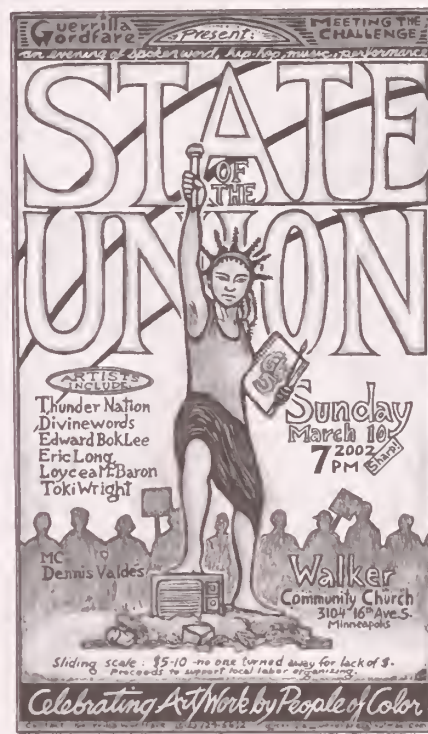 Guerrilla Wordfare
Present:
MEETING THE CHALLENGE
an evening of spoken word, hip-hop, music, performance
STATE
OF THE
UNION
ARTISTS INCLUDE:
Thunder Nation
Divinewords
Edward Bok Lee
Eric Long
Loycea McBaron
Toki Wright
Sunday
March 10
2002
7 PM Sharp!
MC
Dennis Valdes
Walker
Community Church
3104 16th Ave. S.
Minneapolis
Sliding scale: $5-10 - no one turned away for lack of $.
Proceeds to support local labor organizing.
Celebrating ArtWork by People of Color